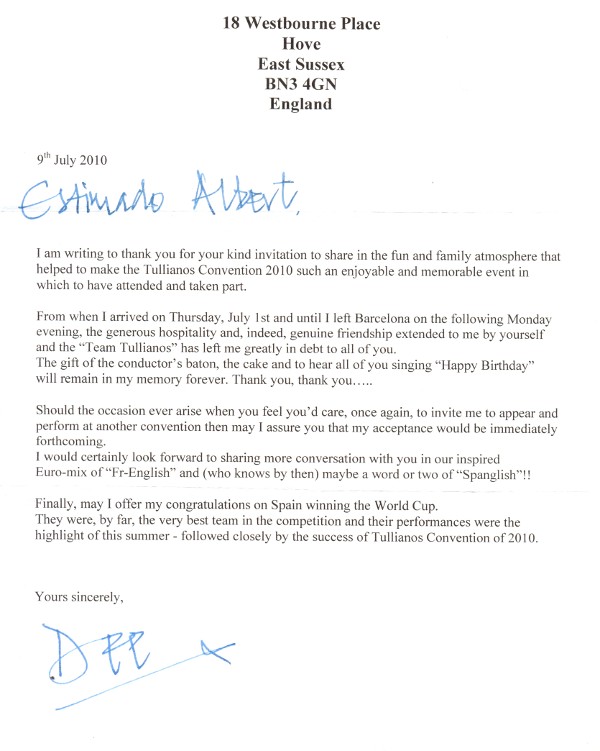 18 Westbourne Place
Hove
East Sussex
BN3 4GN
England
9th July 2010
Estimado Albert,
I am writing to thank you for your kind invitation to share in the fun and family atmosphere that
helped to make the Tullianos Convention 2010 such an enjoyable and memorable event in
which to have attended and taken part.
From when I arrived on Thursday, July 1st and until I left Barcelona on the following Monday
evening, the generous hospitality and, indeed, genuine friendship extended to me by yourself
and the “Team Tullianos” has left me greatly in debt to all of you.
The gift of the conductor’s baton, the cake and to hear all of you singing “Happy Birthday”
will remain in my memory forever. Thank you, thank you…..
Should the occasion ever arise when you feel you’d care, once again, to invite me to appear and
perform at another convention then may I assure you that my acceptance would be immediately
forthcoming.
I would certainly look forward to sharing more conversation with you in our inspired
Euro-mix of “Fr-English” and (who knows by then) maybe a word or two of “Spanglish”!!
Finally, may I offer my congratulations on Spain winning the World Cup.
They were, by far, the very best team in the competition and their performances were the
highlight of this summer - followed closely by the success of Tullianos Convention of 2010.
Yours sincerely,
Dee x